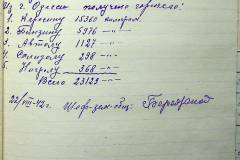 Из г. Одессы получено горючего:
1. Керосину 15360 килогрм.
2. Бензину 5976 —„—
3. Автолу 1127 —„—
4. Солидолу 298 —„—
5. Нигролу 368 —„—
Всего 23129 —„—
22/VIII-42г. Шеф-зав.общ.